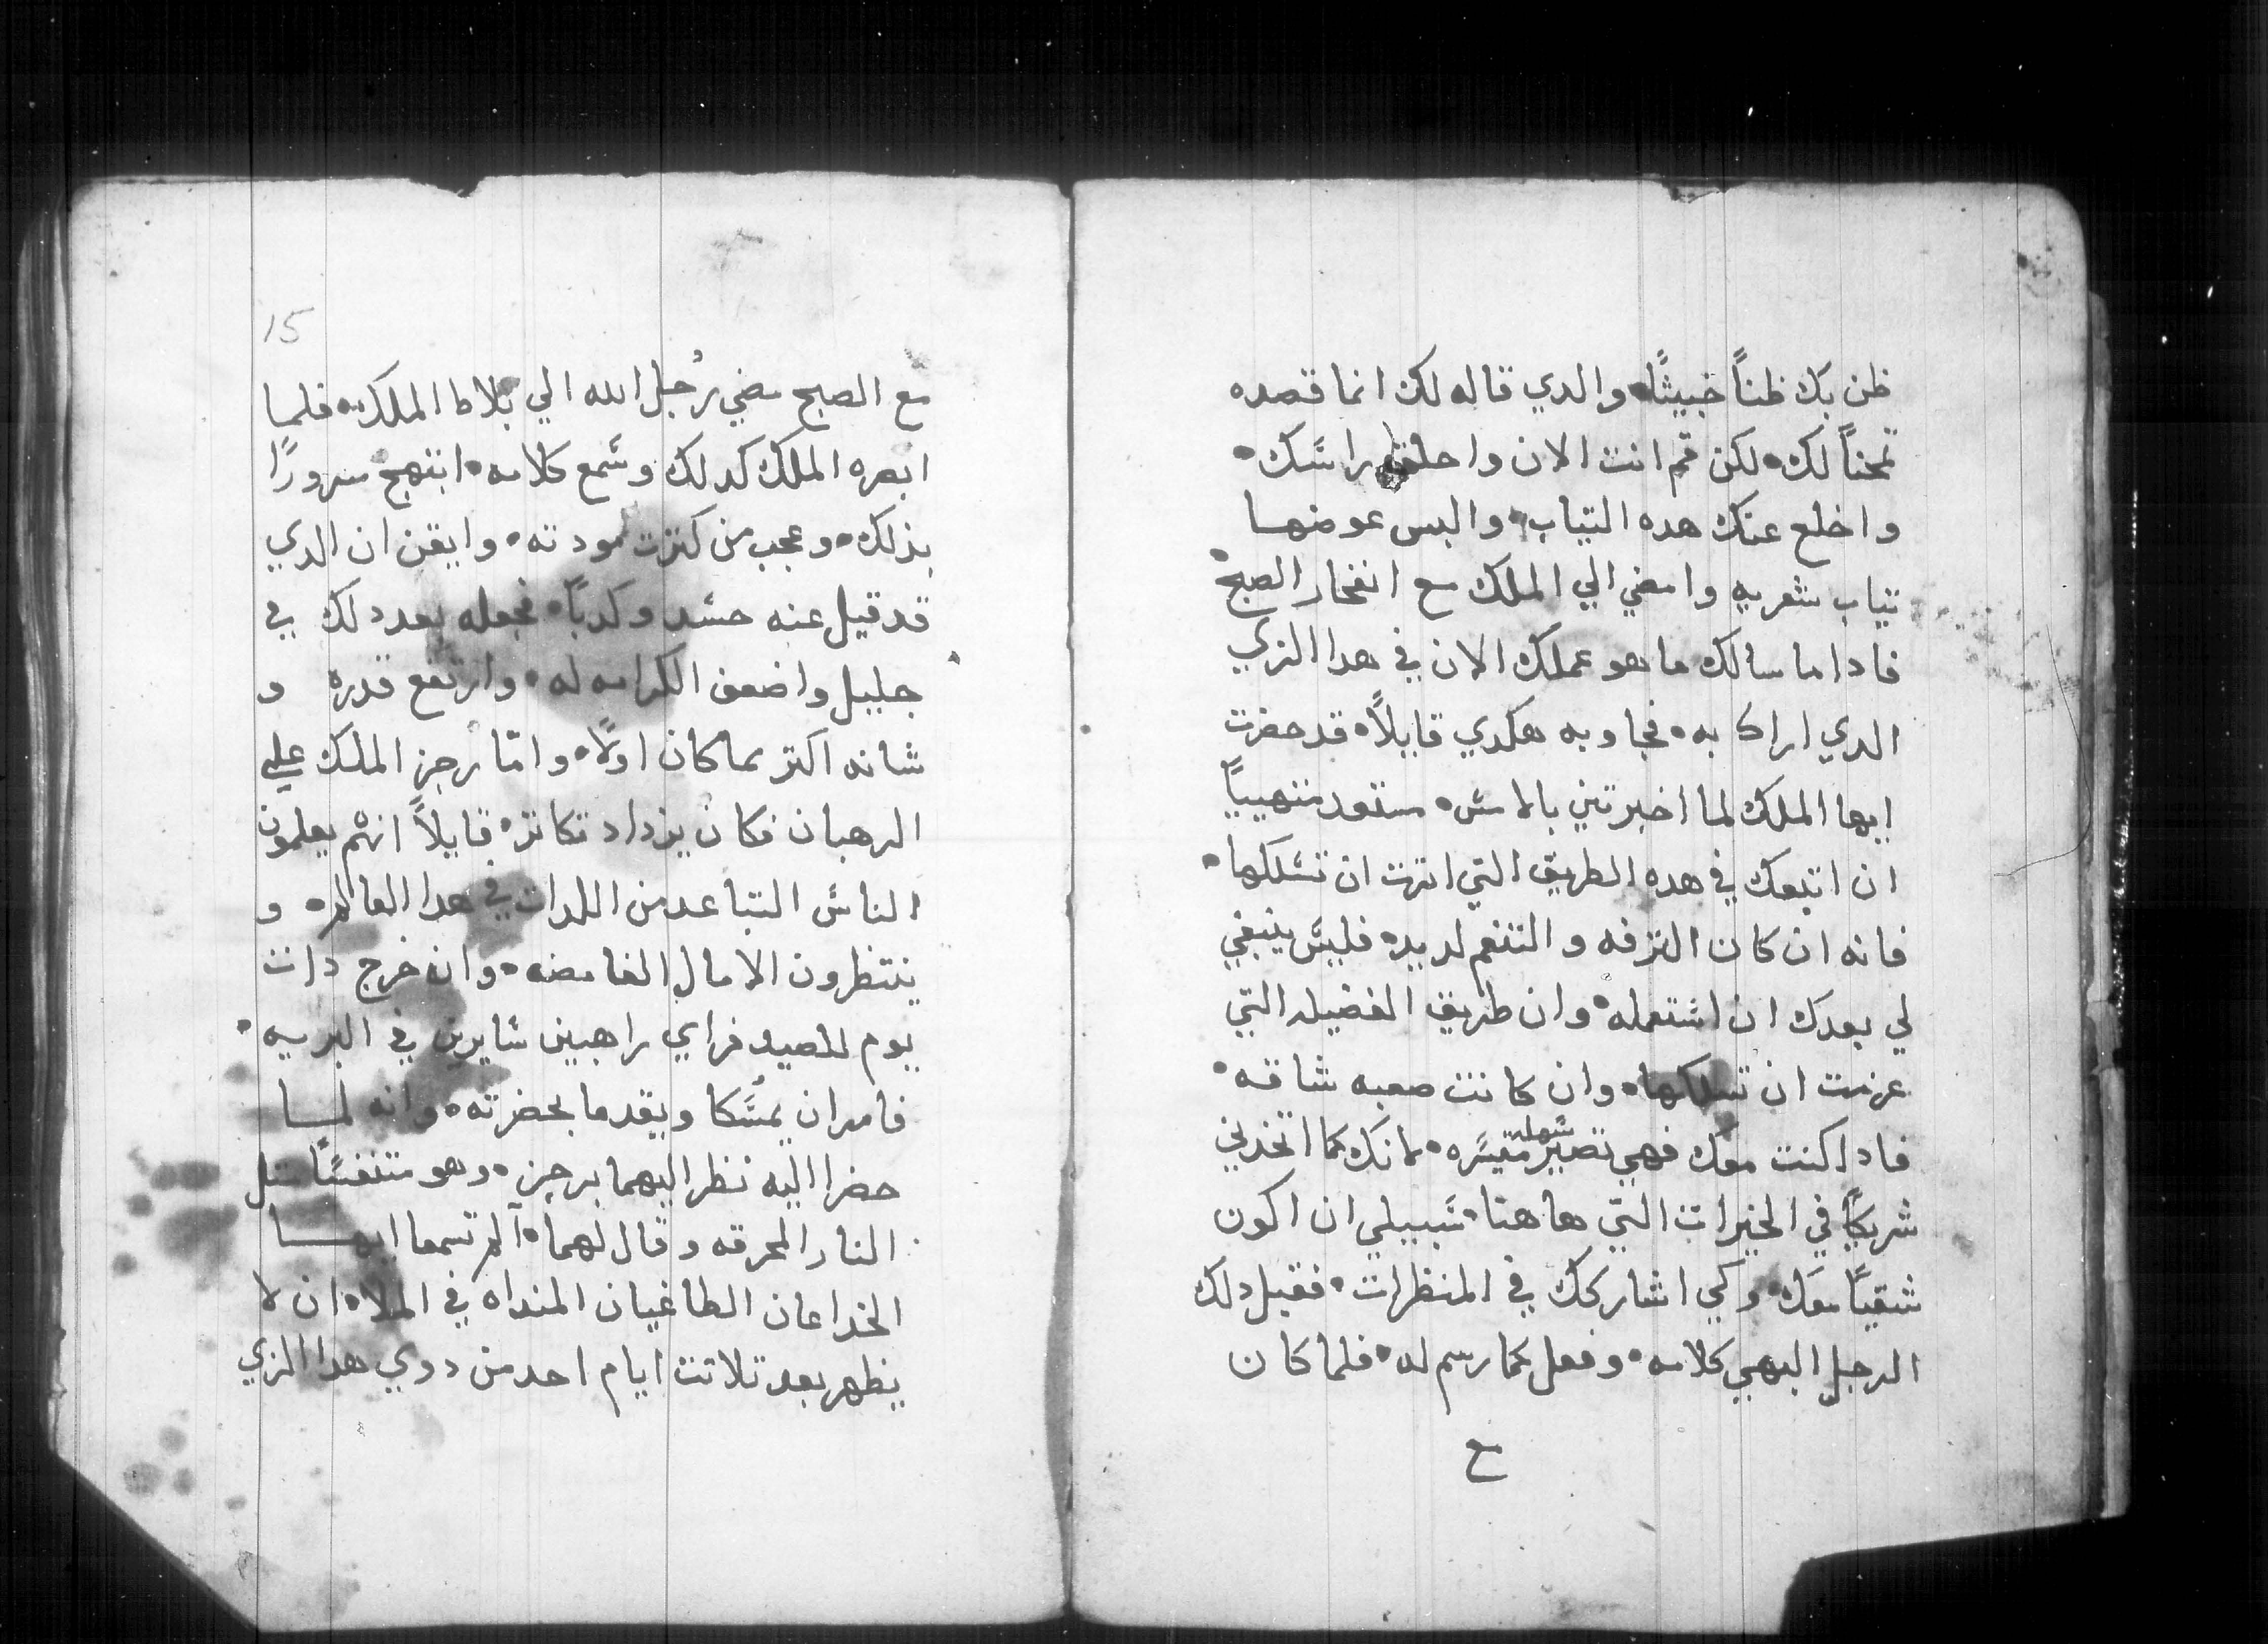 ظن بك ظناً خبيثًا والدي قاله لك انما قصده
تمحناً لك لكن قم انت الان واحلق راسَك
واخلع عنك هده التياب والبس عوضهـا
تياب شعريه وامضي الي الملك مع انفخار الصبح
فادا ما سالك ما هو عملك الان في هدا الزي
الدي اراك به فجاوبه هكدي قايلاً قد حضرت
ايها الملك لما اخبرتني بالامسَ مستعد متهيياً
ان اتبعك في هده الطريق التي اترت ان تسَلكها
فانه ان كان الترفه والتنعم لديده فليسَ ينبغي
لي بعدك ان استَعمله وان طريق الفضيله التي
عزمت ان تسلكها وان كانت صعبه شاقه
فادا كنت معك فهي تصير سَهله متيسَره لانك كما اتخدني
شريكاً في الخيرات التي هاهنا سَبيلي ان اكون
شقيًا معَك وكي اشاركك في المنظرات فقبل دلك
الرجل البهي كلامه وفعل كما رسم له فلما كان
مع
15
مع الصبح مضي رُجل الله الي بلاط الملك فلمـا
ابصره الملك كدلك وسَمع كلامه ابتهج سرورًا
بذلك وعجب من كترت مودته وايقن ان الدي
قد قيل عنه حسَد وكدبًا فجعله بعد دلك في
جليل واضعف الكرامه له وارتفع قدره و
شانه اكتر مما كان اولاً وامّا رجز الملك علي
الرهبان فكان يزداد تكاتر قايلاً انهُم يعلمون
الناسَ التباعد من اللدات في هدا العالم و
ينتظرون الامال الغامضه وان خرج دات
يوم للصيد فراي راهبين سَايرين في البريه
فامر ان يمسَكا ويقدما بحضرته وانه لمـا
حضرا اليه نظر اليهما برجز وهو متنفسًا متل
النار المحرقه وقال لهما آلم تسمعا ايهـا
الخداعان الطاغيان المنداه في الملاه ان لا
يظهر بعد تلاتت ايام احد من دوي هدا الزي